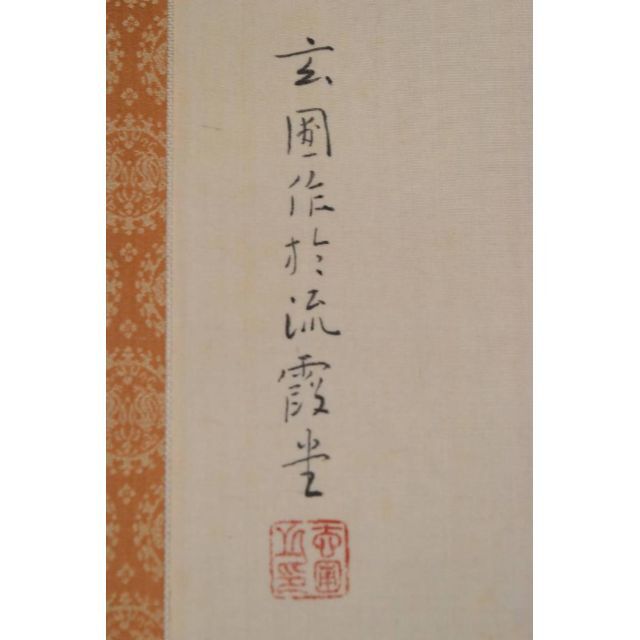 玄圃作於流霞堂